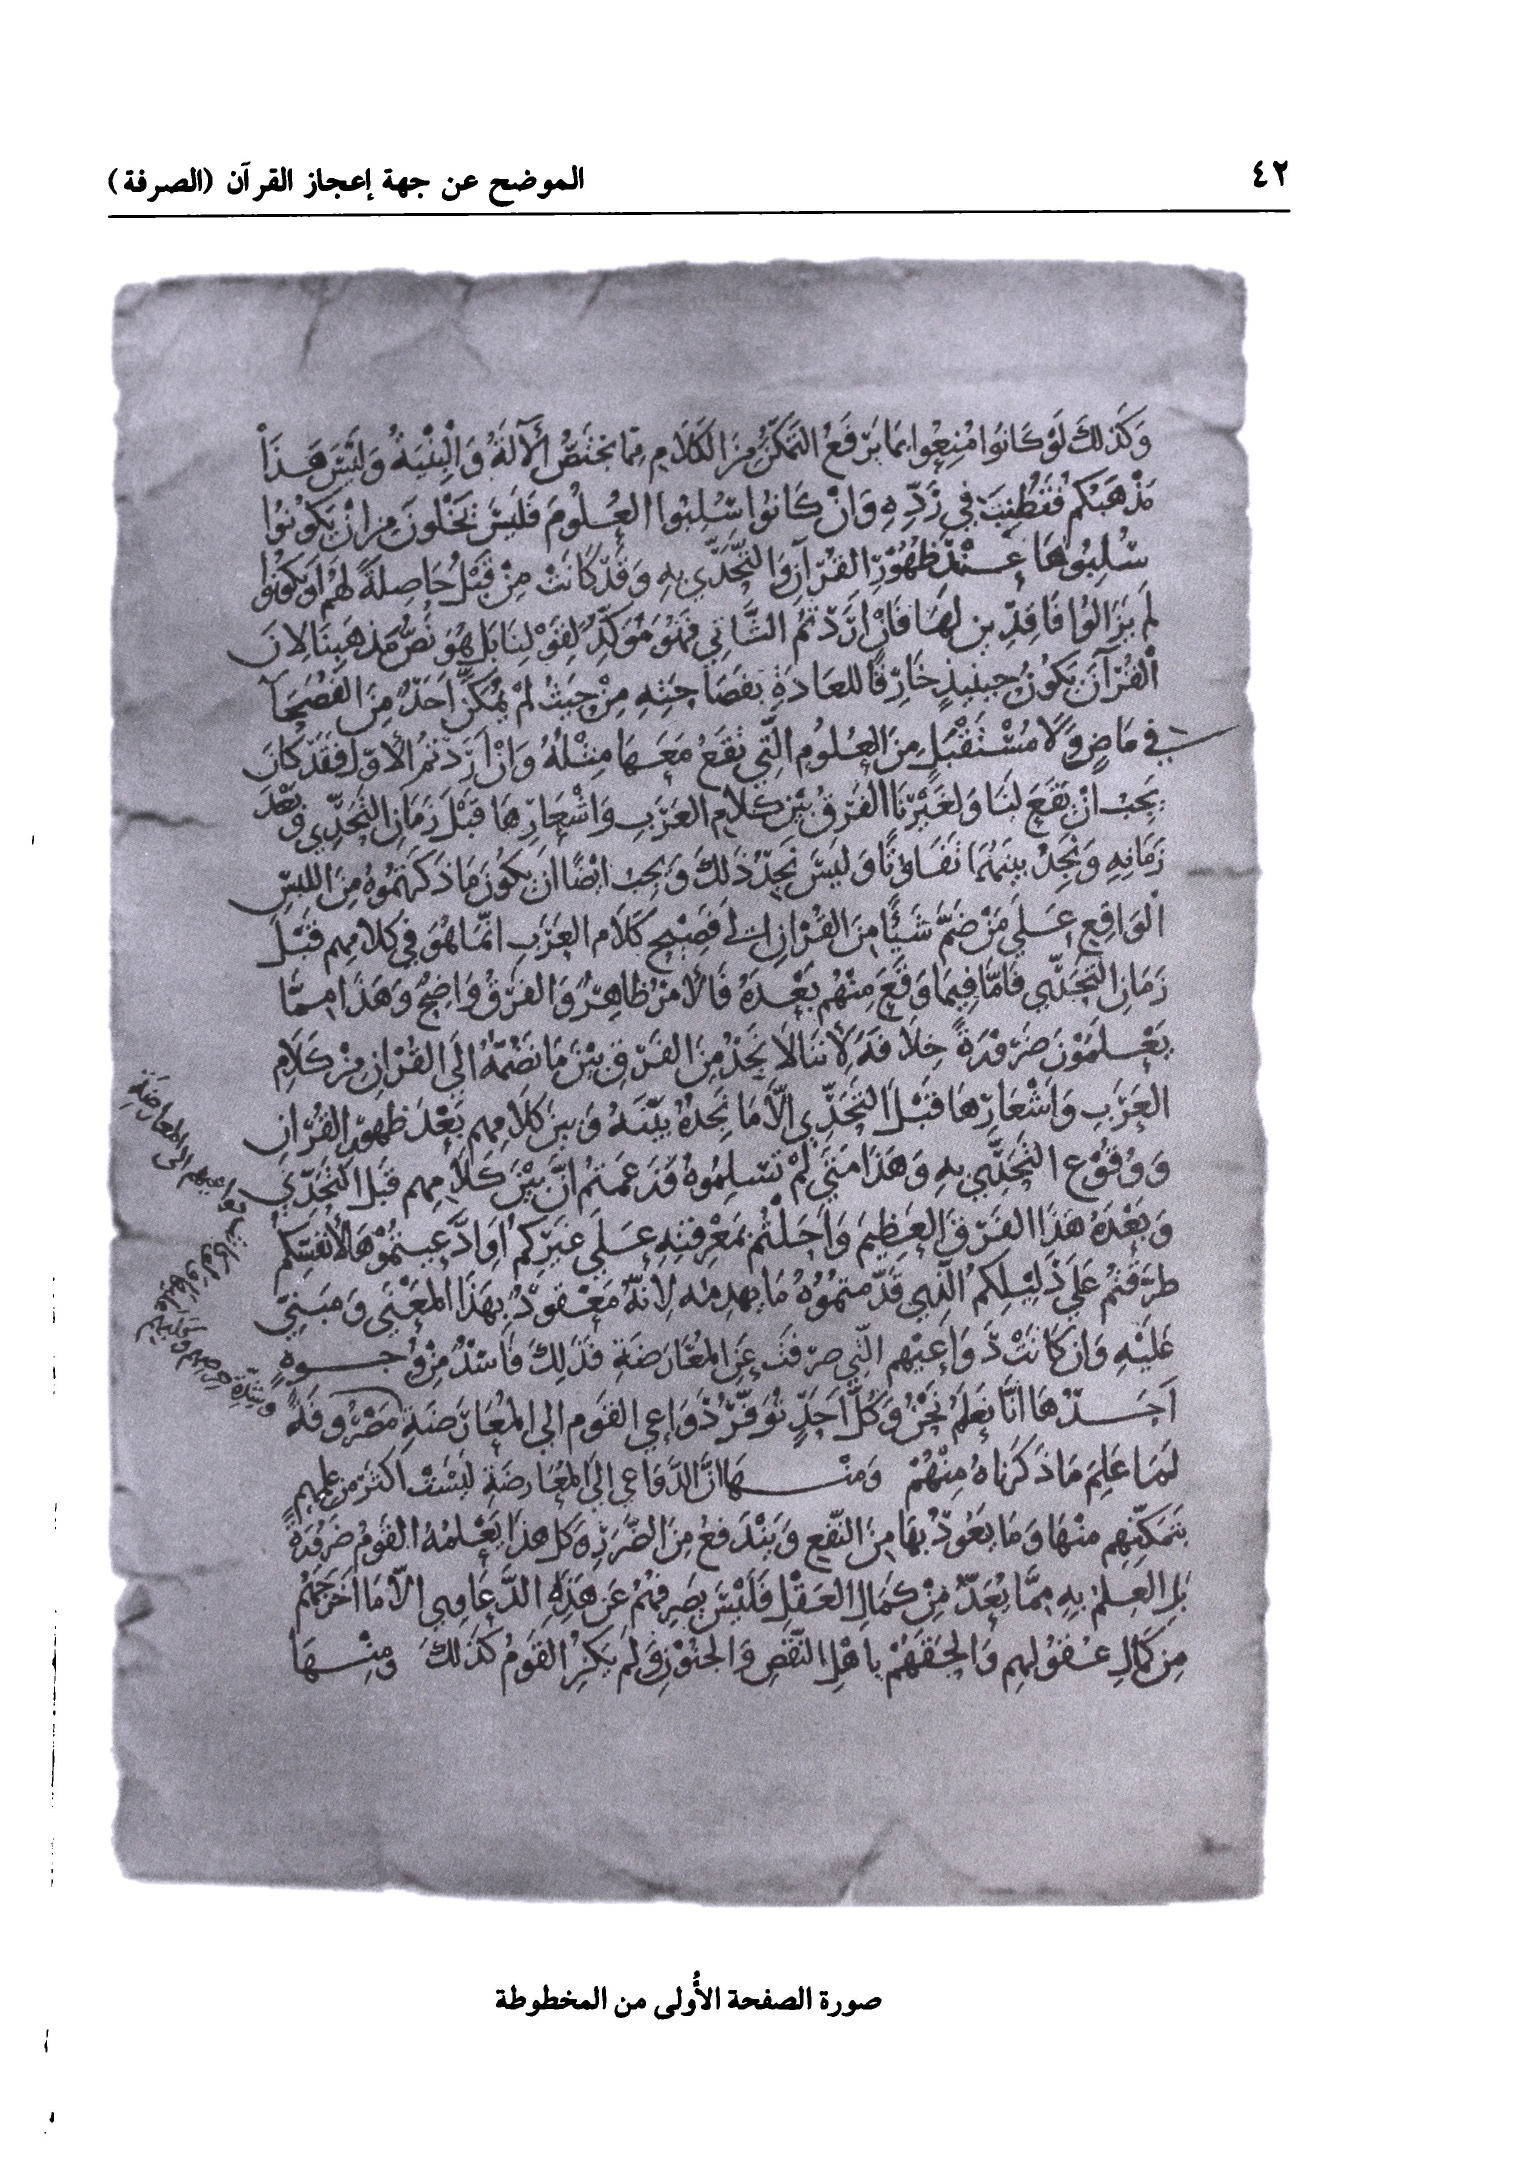 ٤٢
الموضح عن جهة إعجاز القرآن (الصرفة)
وَكَذلكَ لَوْ كَانُوا مُنِعُوا بمَا يَرْفَعُ التمَكّنَ مِنَ الكَلَامِ مِمّا يَختَصُّ الآلَةَ وَالْبِنْيَةَ وَلَيْسَ هَذَا
مَذْهَبَكم فنُطنِبَ في رَدِّهِ وَانْ كَانُوا سُلِبُوا العُلُومَ فَلَيْسَ يَخْلُونَ مِن انْ يَكُونُوا
سُلِبُوهَا عِنْدَ ظهُوْرِ القُرْآنِ وَالتَّحَدِّي بِهِ وَقَدْ كَانَتْ مِنْ قَبْلُ حَاصِلَةً لَهُم اَوْ يَكُونُوا
لَم يَزَالُوا فَاقِدِين لهَا فَانْ اَرَدْتمُ الثَّاني فَهُوَ مُؤَكِّدٌ لِقَوْلِنَا بَلْ هُوَ نَصُّ مَذهَبِنَا لِانَ
الْقُرْآنَ يَكُونُ حِينَئِذٍ خَارِقًا للعَادَةِ بفَصَاحَتِهِ مِنْ حَيثُ لَمْ يُمَكَّنْ اَحَدٌ مِنَ الفُصَحَآ
في مَاضٍ وَلَا مُسْتَقْبَلٍ مِنَ العُلُومِ الَّتِي تَقَعُ مَعَهَا مِثْلُهُ وَانْ اَرَدْتمُ الاَوّلَ فَقَدْ كَانَ
يَجبُ انْ يَقَعَ لنَا وَلغَيْرِنَا الفَرْقُ بَيْنَ كلَامِ العَرَبِ وَاشْعَارِهَا قَبْلَ زَمَانِ التَّحَدِّي وَبَعْدَ
زَمَانِهِ وَنَجِدُ بينَهُمَا تَفَاوُتًا وَلَيسَ نَجدُ ذَلكَ وَيَجبُ ايْضًا اَن يَكُونَ مَا ذَكَرتمُوهُ مِنَ اللبسِ
الوَاقِعِ عَلَى مَنْ ضَمَّ شَيْئًا مِنَ القُرْانِ الى فَصِيْحِ كَلَامِ العَرَبِ انّمَا هُوَ في كَلامِهِم قَبْلَ
زَمَانِ التَّحَدِّي فَامّا فيمَا وَقَعَ مِنْهُم بَعْدَهُ فَالامْرُ ظَاهِرٌ وَالفَرْقُ وَاضِحٌ وَهَذَا مِمَّا
يَعْلَمُوْنَ ضَرُوْرَةً خِلَافَهُ لِأَنَنَا لَا نَجدُ مِنَ الفَرْقِ بيْنَ مَا نَضُمّهُ الَى القُرْانِ مِنْ كَلَامِ
العَرَبِ وَاشْعَارِهَا قَبْلَ التَّحَدِّي الَّا مَا نَجدُهُ بَيْنَهُ وَبينَ كَلَامِهِم بَعْدَ ظهُورِ القُرْآنِ
وَوُقُوْعِ التَّحَدِّي بِهِ وَهَذَا مَتَى لَمْ تُسَلِّمُوهُ وَزَعَمْتمُ انَّ بَيْنَ كَلَامِهِم قَبْلَ التَّحَدِّي
وَبَعْدَهُ هَذَا الفَرْقَ العَظِيمَ وَاَحَلْتُم بمَعْرِفَتِهِ عَلَى غيَرِكمُ اَوِ ادَّعَيْتمُوْهَا لأنفُسِكُم
طَرّقْتُم عَلَى دَلِيلِكُم الَّذِي قَدّمْتموُهُ مَا يَهدِمهُ لِانَّهُ مَعْقُودٌ بهَذَا المَعْنَى وَمَبنيٌّ
عَلَيْهِ وَان كَانَتْ دَوَاعِيْهِم الَّتِي صرفَتْ عَنِ المُعَارَضَةِ فَذَلِكَ فَاسْدٌ مِنْ وُجُوهٍ
اَحَدُهَا انَّا نَعلَمُ نَحْنُ وَكُلُّ اَحَدٍ تَوَفُّرُ دَوَاعِي القَوم الى المُعَارَضَةِ مَصْرُوفَةً
لَمَا عَلِمَ مَا ذَكَرنَاهُ مِنْهُمْ وَمنْهَا انَّ الدَّوَاعِي الَى المُعَارضَةِ لَيْسَتْ اكثَرَ مِن علمِهِمْ
بتَمكّنِهِم منْهَا وَمَا يَعُودُ بهَا مِنَ النَّفعِ وَيَنْدَفعُ مِنَ الضَّرَرِ وَكلّ هذَا يَعْلمهُ القَومُ ضَرُوْرَةً
بلِ العِلمُ بهِ مِمَّا يُعَدُّ مِنْ كَمَالِ العَقْلِ فَلَيْسَ يَصرِفهُم عَن هَذِهِ الدَّوَاعِي الّا مَا اخرَجَهُم
مِن كمَالِ عُقُولِهِم وَالحَقَهُمْ باهْلِ النَّقْصِ وَالجنُوْنِ وَلَم يَكنِ القَومُ كَذَلكَ وَمِنْهَا
دَواعيهم الى المعارضَةِ
وَشِدّةَ حِرصِهم
صورة الصفحة الأُولى من المخطوطة